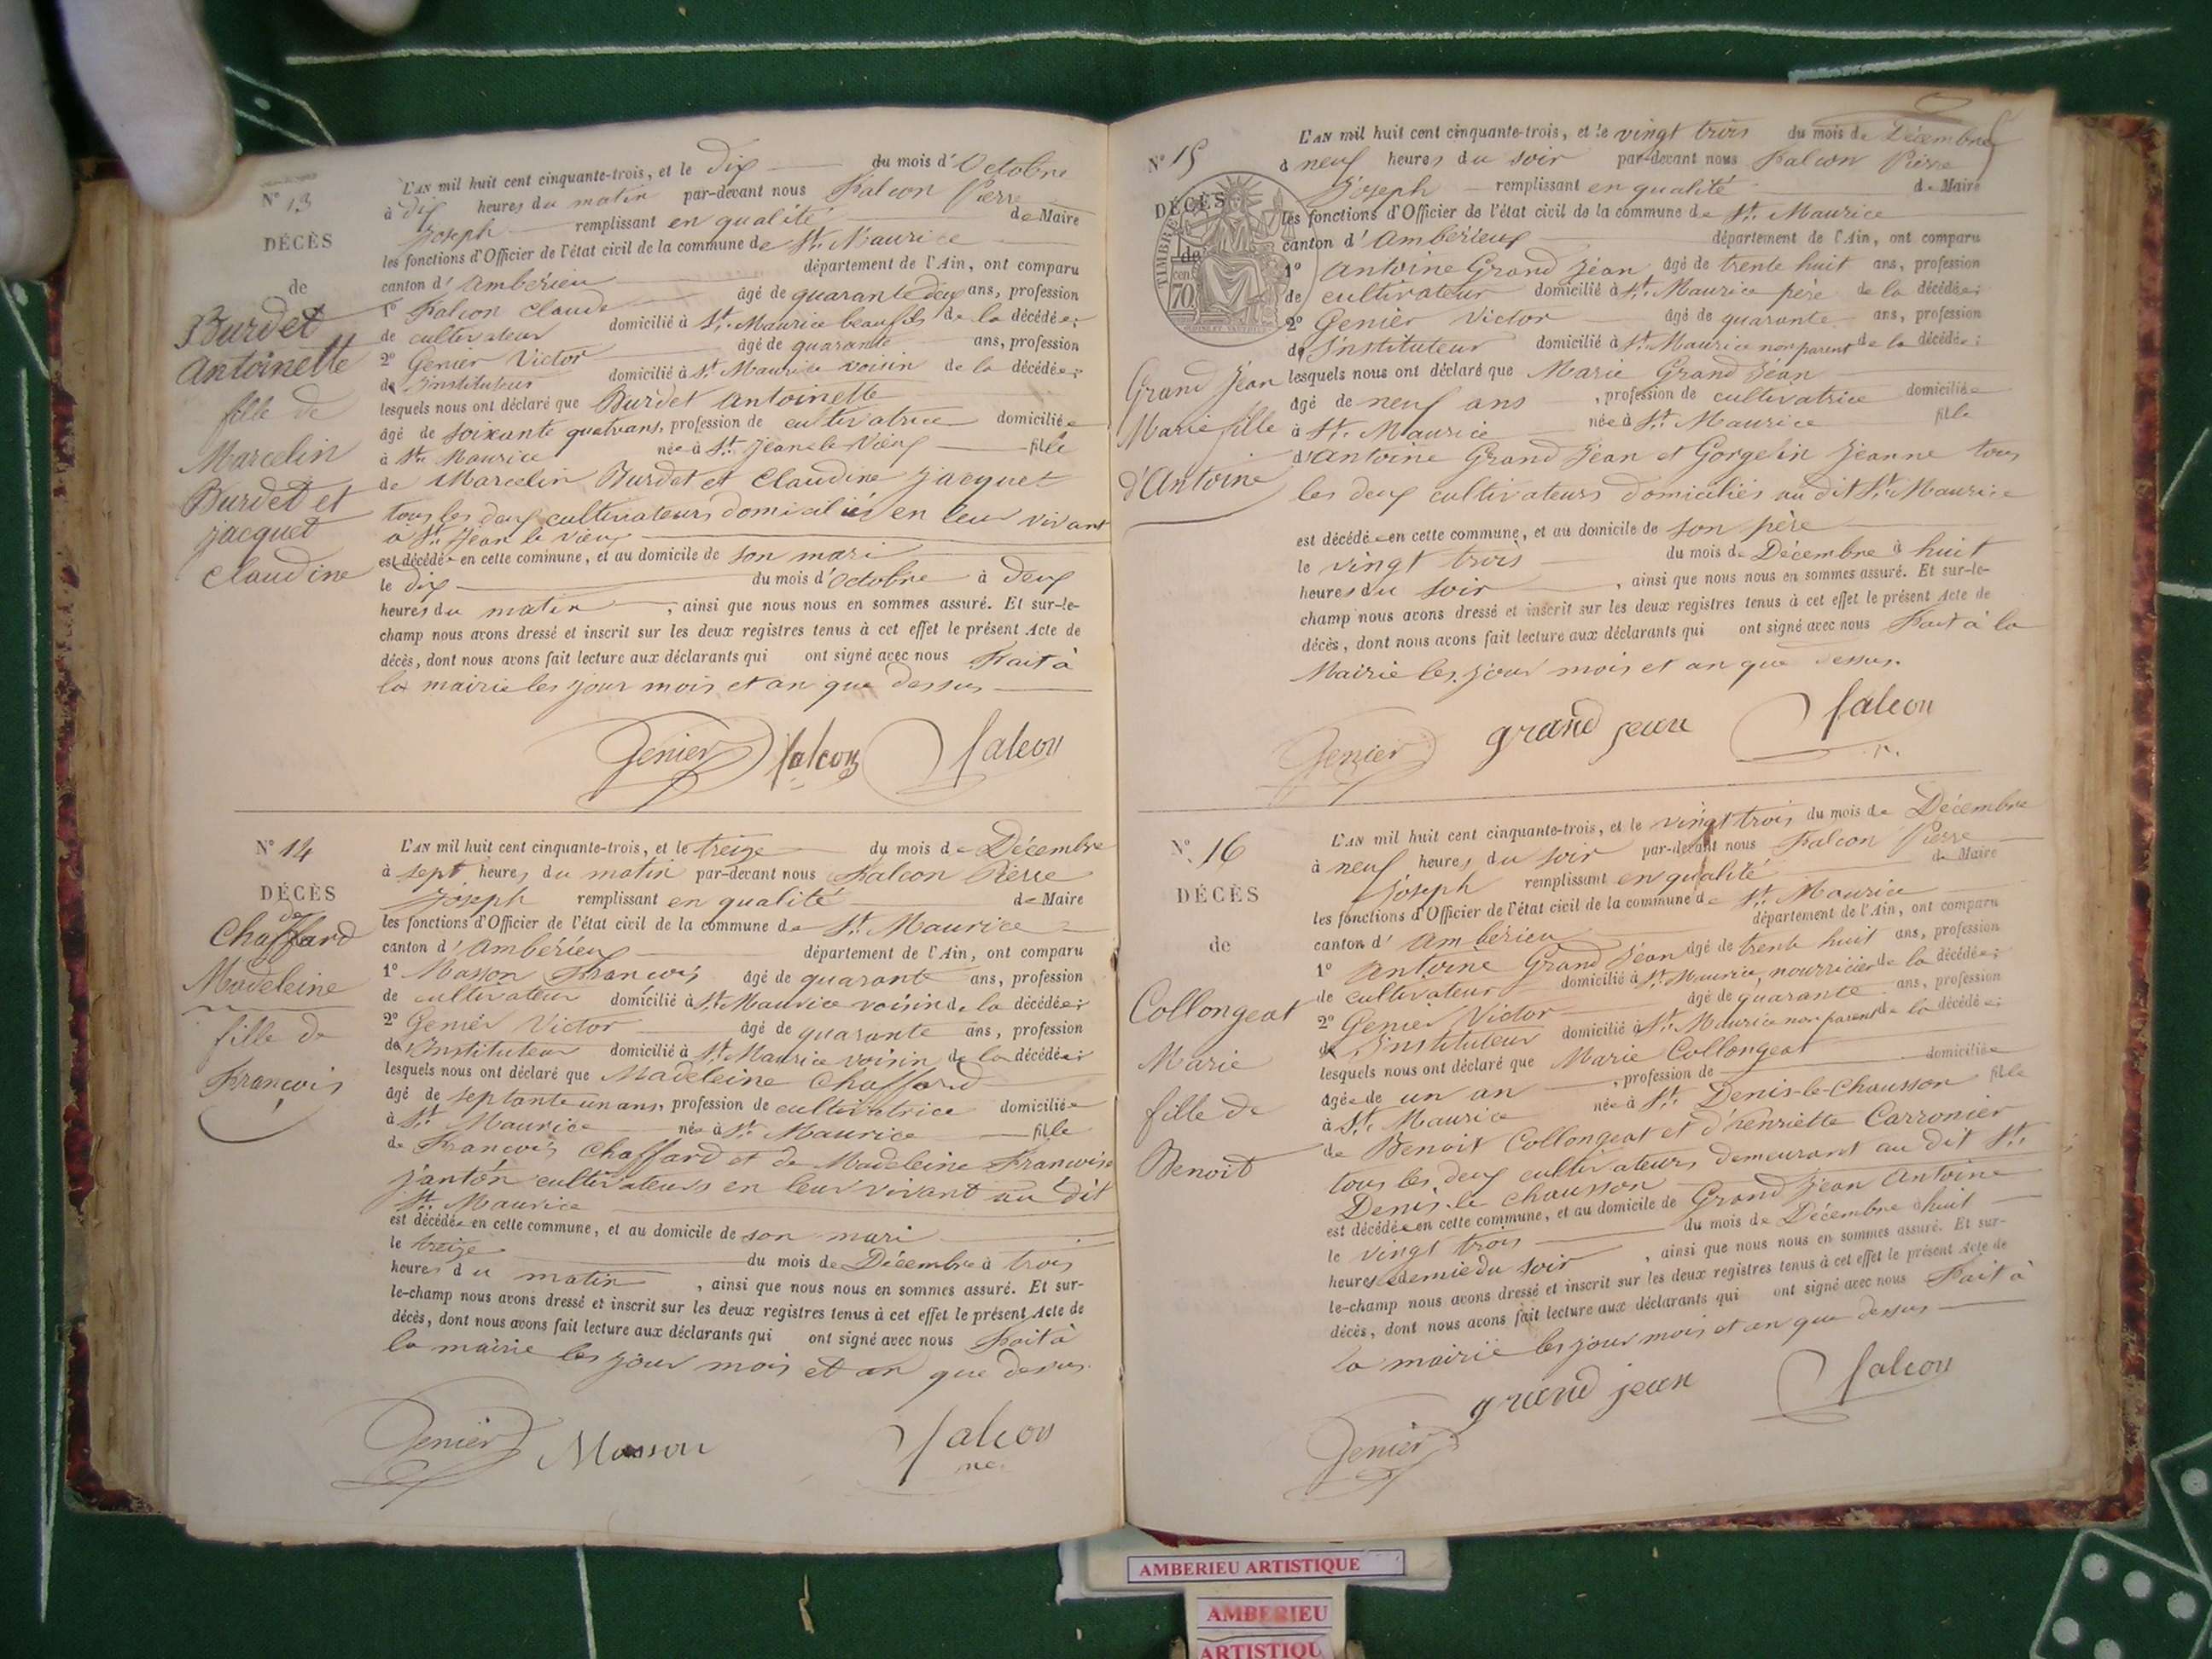 N° 13
DÉCÈS
de
Burdet
Antoinette
fille de
Marcelin
Burdet et
jacquet
Claudine
L'AN mil huit cent cinquante-trois, et le dix du mois d'Octobre
à dix heures du matin par-devant nous Falcon Pierre
Joseph remplissant en qualité de Maire
les fonctions d'Officier de l'état civil de la commune de St. Maurice
canton d'Ambérieux département de l'Ain, ont comparu
1° Falcon Claude âgé de quarante deux ans, profession
de cultivateur domicilié à St. Maurice beaufils de la décédée;
2° Genier Victor âgé de quarante ans, profession
de Instituteur domicilié à St. Maurice voisin de la décédée;
lesquels nous ont déclaré que Burdet Antoinette
âgé de soixante quatre ans, profession de cultivatrice domiciliée
à St. Maurice née à St. Jean le Vieux fille
de Marcelin Burdet et Claudine Jacquet
tous les deux cultivateurs domiciliés en leur vivant
à St. Jean le Vieux
est décédée en cette commune, et au domicile de son mari
le dix du mois d'Octobre à deux
heures du matin , ainsi que nous nous en sommes assuré. Et sur-le-
champ nous avons dressé et inscrit sur les deux registres tenus à cet effet le présent Acte de
décès, dont nous avons fait lecture aux déclarants qui ont signé avec nous Fait à
la mairie les jour mois et an que dessus
Genier falcon falcon
N° 14
DÉCÈS
de
Chaffard
Madeleine
fille de
François
L'AN mil huit cent cinquante-trois, et le treize du mois de Décembre
à sept heures du matin par-devant nous Falcon Pierre
Joseph remplissant en qualité de Maire
les fonctions d'Officier de l'état civil de la commune de St. Maurice
canton d'Ambérieux département de l'Ain, ont comparu
1° Masson François âgé de quarante ans, profession
de cultivateur domicilié à St. Maurice voisin de la décédée;
2° Genier Victor âgé de quarante ans, profession
de Instituteur domicilié à St. Maurice voisin de la décédée;
lesquels nous ont déclaré que Madeleine Chaffard
âgé de septante un ans, profession de cultivatrice domiciliée
à St. Maurice née à St. Maurice fille
de François Chaffard et de Madeleine Françoise
Janton cultivateurs en leur vivant au dit
St. Maurice
est décédée en cette commune, et au domicile de son mari
le treize du mois de Décembre à trois
heures du matin , ainsi que nous nous en sommes assuré. Et sur-
le-champ nous avons dressé et inscrit sur les deux registres tenus à cet effet le présent Acte de
décès, dont nous avons fait lecture aux déclarants qui ont signé avec nous Fait à
la mairie les jour mois et an que dessus.
Genier Masson falcon
N° 15
DÉCÈS
de
TIMBRE
cen
70
Grand Jean
Marie fille
d'Antoine
L'AN mil huit cent cinquante-trois, et le vingt trois du mois de Décembre
à neuf heures du soir par-devant nous Falcon Pierre
Joseph remplissant en qualité de Maire
les fonctions d'Officier de l'état civil de la commune de St. Maurice
canton d'Ambérieux département de l'Ain, ont comparu
1° Antoine Grand Jean âgé de trente huit ans, profession
de cultivateur domicilié à St. Maurice père de la décédée;
2° Genier Victor âgé de quarante ans, profession
de Instituteur domicilié à St. Maurice non parent de la décédée;
lesquels nous ont déclaré que Marie Grand Jean
âgé de neuf ans , profession de cultivatrice domiciliée
à St. Maurice née à St. Maurice fille
d'Antoine Grand Jean et Gorgelin Jeanne tous
les deux cultivateurs domiciliés au dit St. Maurice
est décédée en cette commune, et au domicile de son père
le vingt trois du mois de Décembre à huit
heures du soir , ainsi que nous nous en sommes assuré. Et sur-le-
champ nous avons dressé et inscrit sur les deux registres tenus à cet effet le présent Acte de
décès, dont nous avons fait lecture aux déclarants qui ont signé avec nous Fait à la
Mairie les jour mois et an que dessus.
Genier grand jean falcon
N° 16
DÉCÈS
de
Collongeat
Marie
fille de
Benoit
L'AN mil huit cent cinquante-trois, et le vingt trois du mois de Décembre
à neuf heures du soir par-devant nous Falcon Pierre
Joseph remplissant en qualité de Maire
les fonctions d'Officier de l'état civil de la commune de St. Maurice
canton d'Ambérieu département de l'Ain, ont comparu
1° Antoine Grand Jean âgé de trente huit ans, profession
de cultivateur domicilié à St. Maurice, nourricier de la décédée;
2° Genier Victor âgé de quarante ans, profession
de Instituteur domicilié à St. Maurice non parent de la décédée;
lesquels nous ont déclaré que Marie Collongeat
âgée de un an , profession de domiciliée
à St. Maurice née à St. Denis-le-Chausson fille
de Benoit Collongeat et d'henriette Carronier
tous les deux cultivateurs demeurant au dit St.
Denis-le Chausson
est décédée en cette commune, et au domicile de Grand Jean Antoine
le vingt trois du mois de Décembre à huit
heures et demie du soir , ainsi que nous nous en sommes assuré. Et sur-
le-champ nous avons dressé et inscrit sur les deux registres tenus à cet effet le présent Acte de
décès, dont nous avons fait lecture aux déclarants qui ont signé avec nous Fait à
la mairie les jour mois et an que dessus
Genier grand jean falcon
AMBERIEU ARTISTIQUE
AMBERIEU
ARTISTIQU